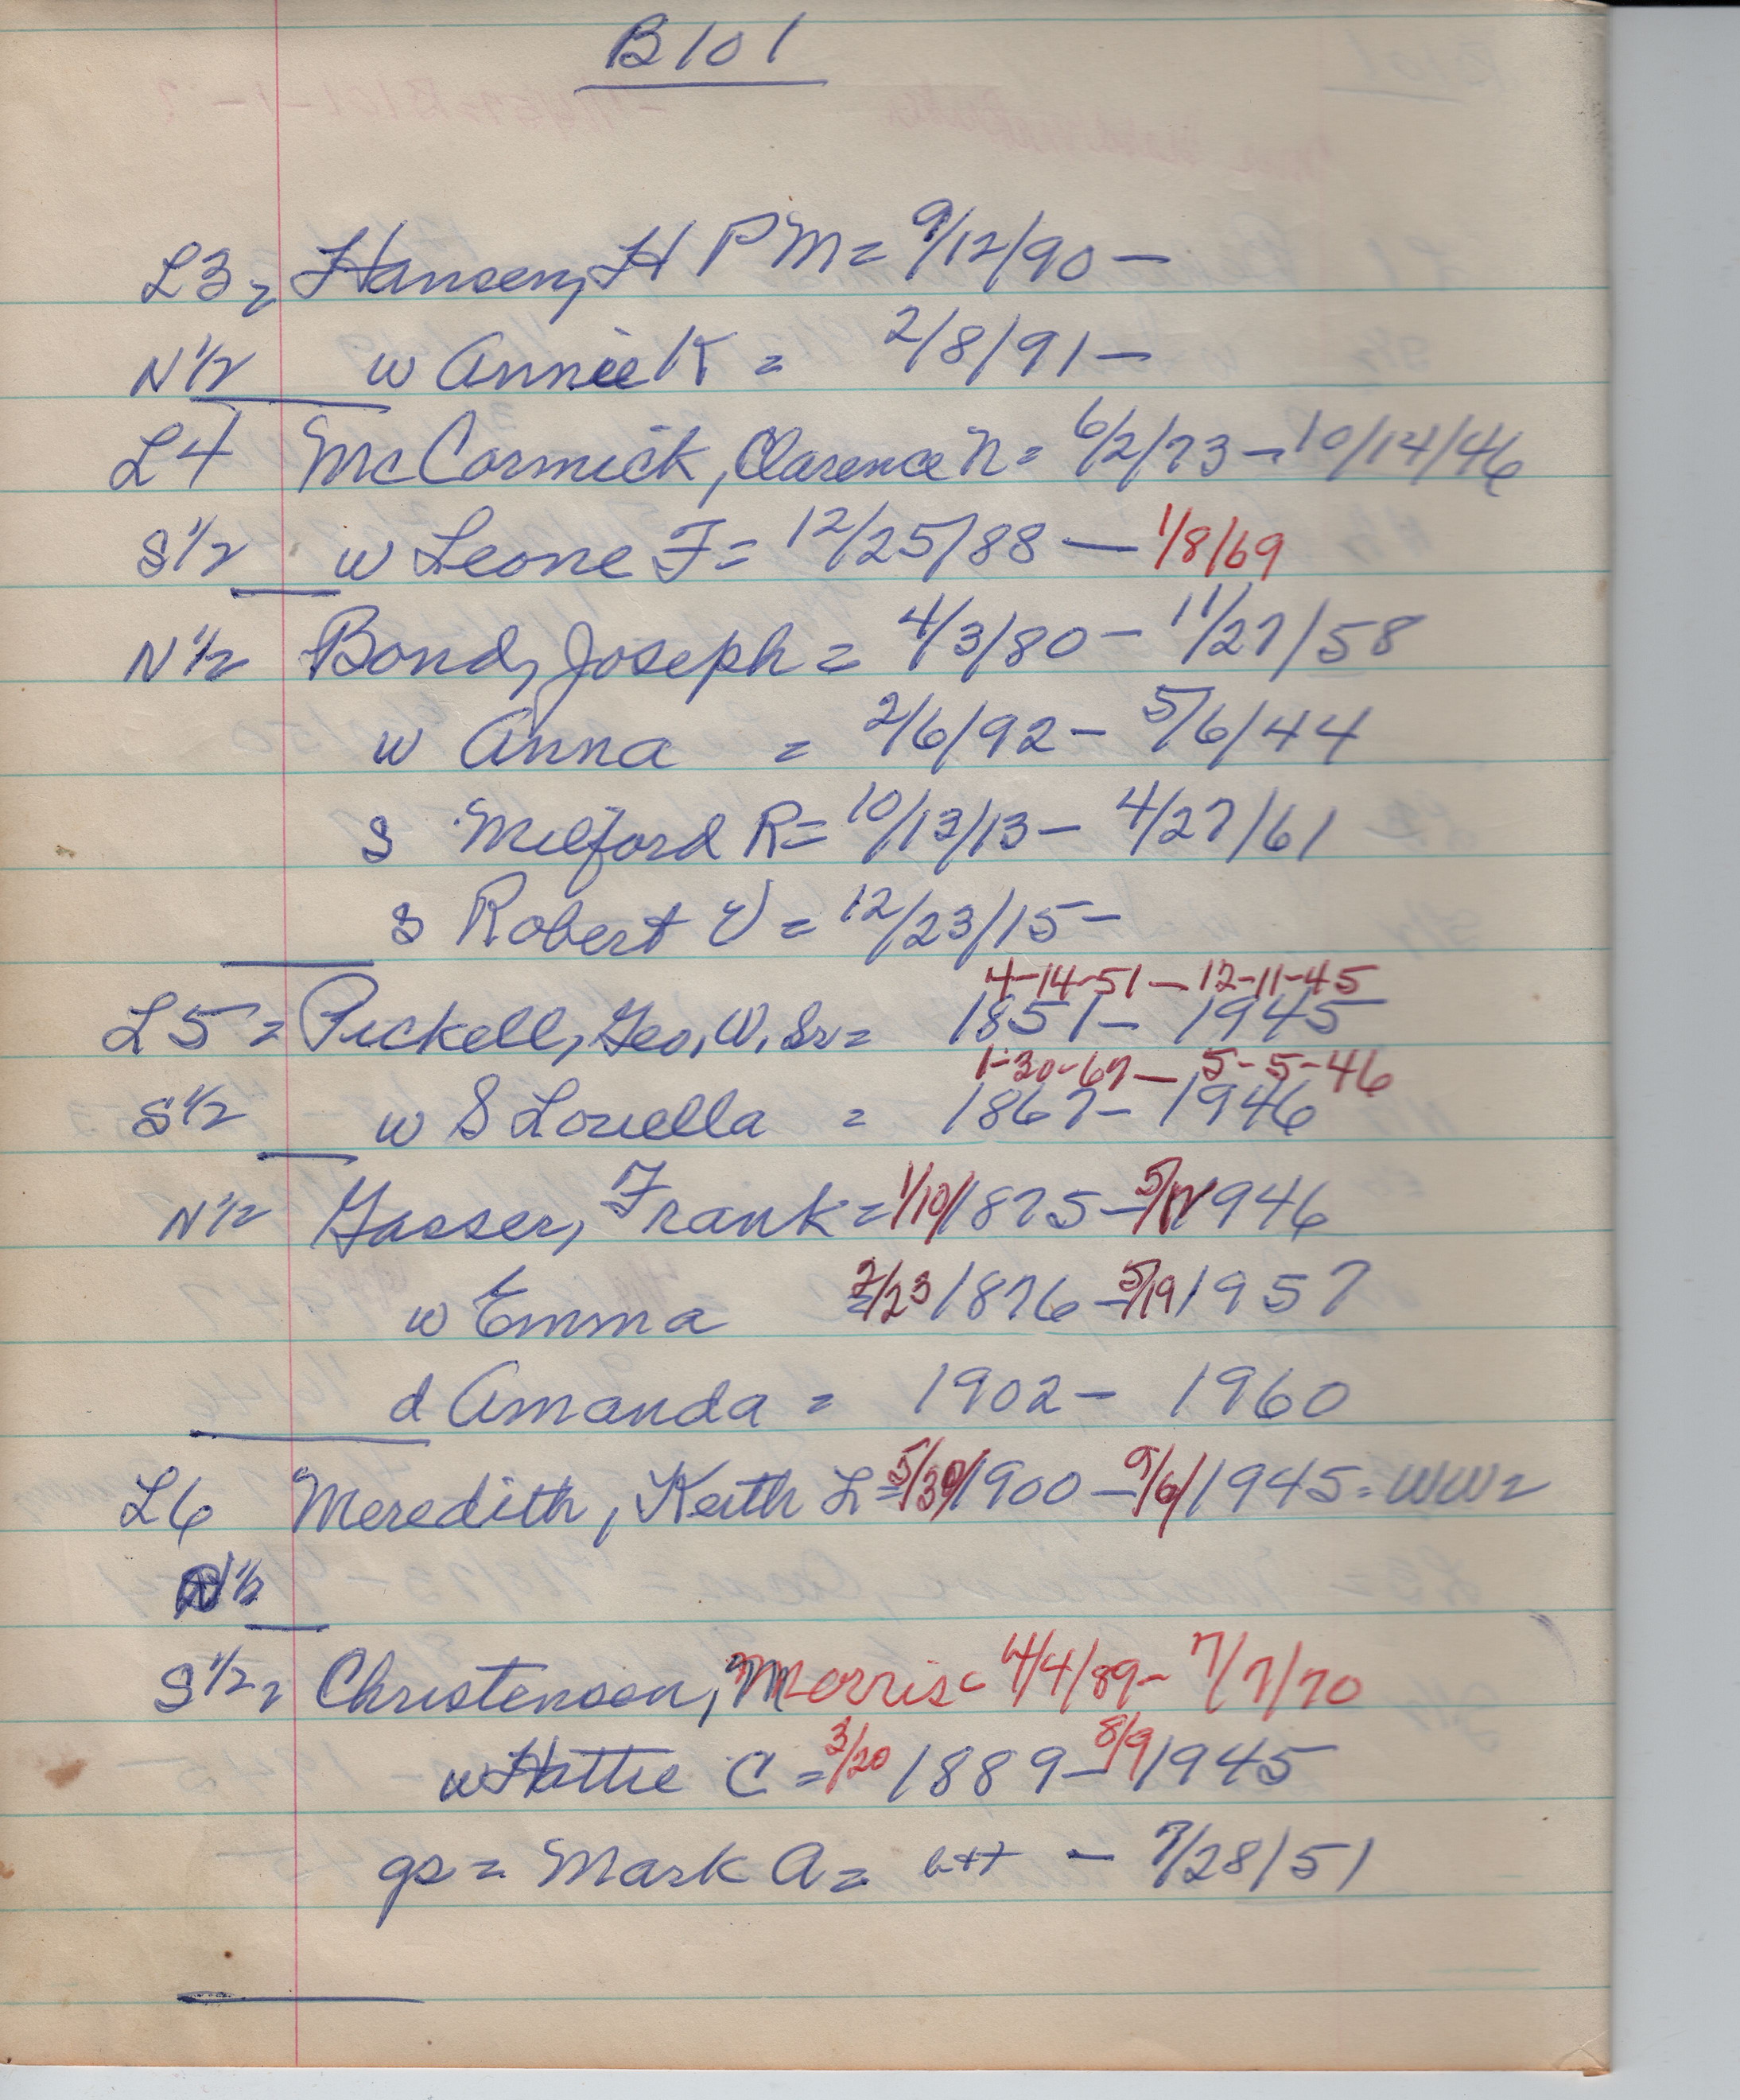 B101
L3= Hansen, H P M = 9/12/90 —
N 1/2 w Annie K = 2/8/91 —
L4 McCormick, Clarence N = 6/2/73 — 10/14/46
S 1/2 w Leone F = 12/25/88 — 1/8/69
N 1/2 Bond, Joseph = 4/3/80 — 11/27/58
w Anna = 2/6/92 — 5/6/44
s Milford R = 10/13/13 — 4/27/61
s Robert V = 12/23/15 —
4-14-51 — 12-11-45
L5 = Pickell, Geo, W, Sr = 1851 — 1945
1-30-67 — 5-5-46
S 1/2 w S Louella = 1867 — 1946
N 1/2 Gasser, Frank = 1/10/1875 — 5/11/1946
w Emma = 2/23 1876 — 5/19 1957
d Amanda = 1902 — 1960
L6 Meredith, Keith L = 5/30/1900 — 9/6/1945 = WW2
N 1/2
S 1/2 = Christensen, Morris = 4/4/89 — 7/7/70
w Hattie C = 3/20 1889 — 8/9 1945
gs = Mark A = — 7/28/51